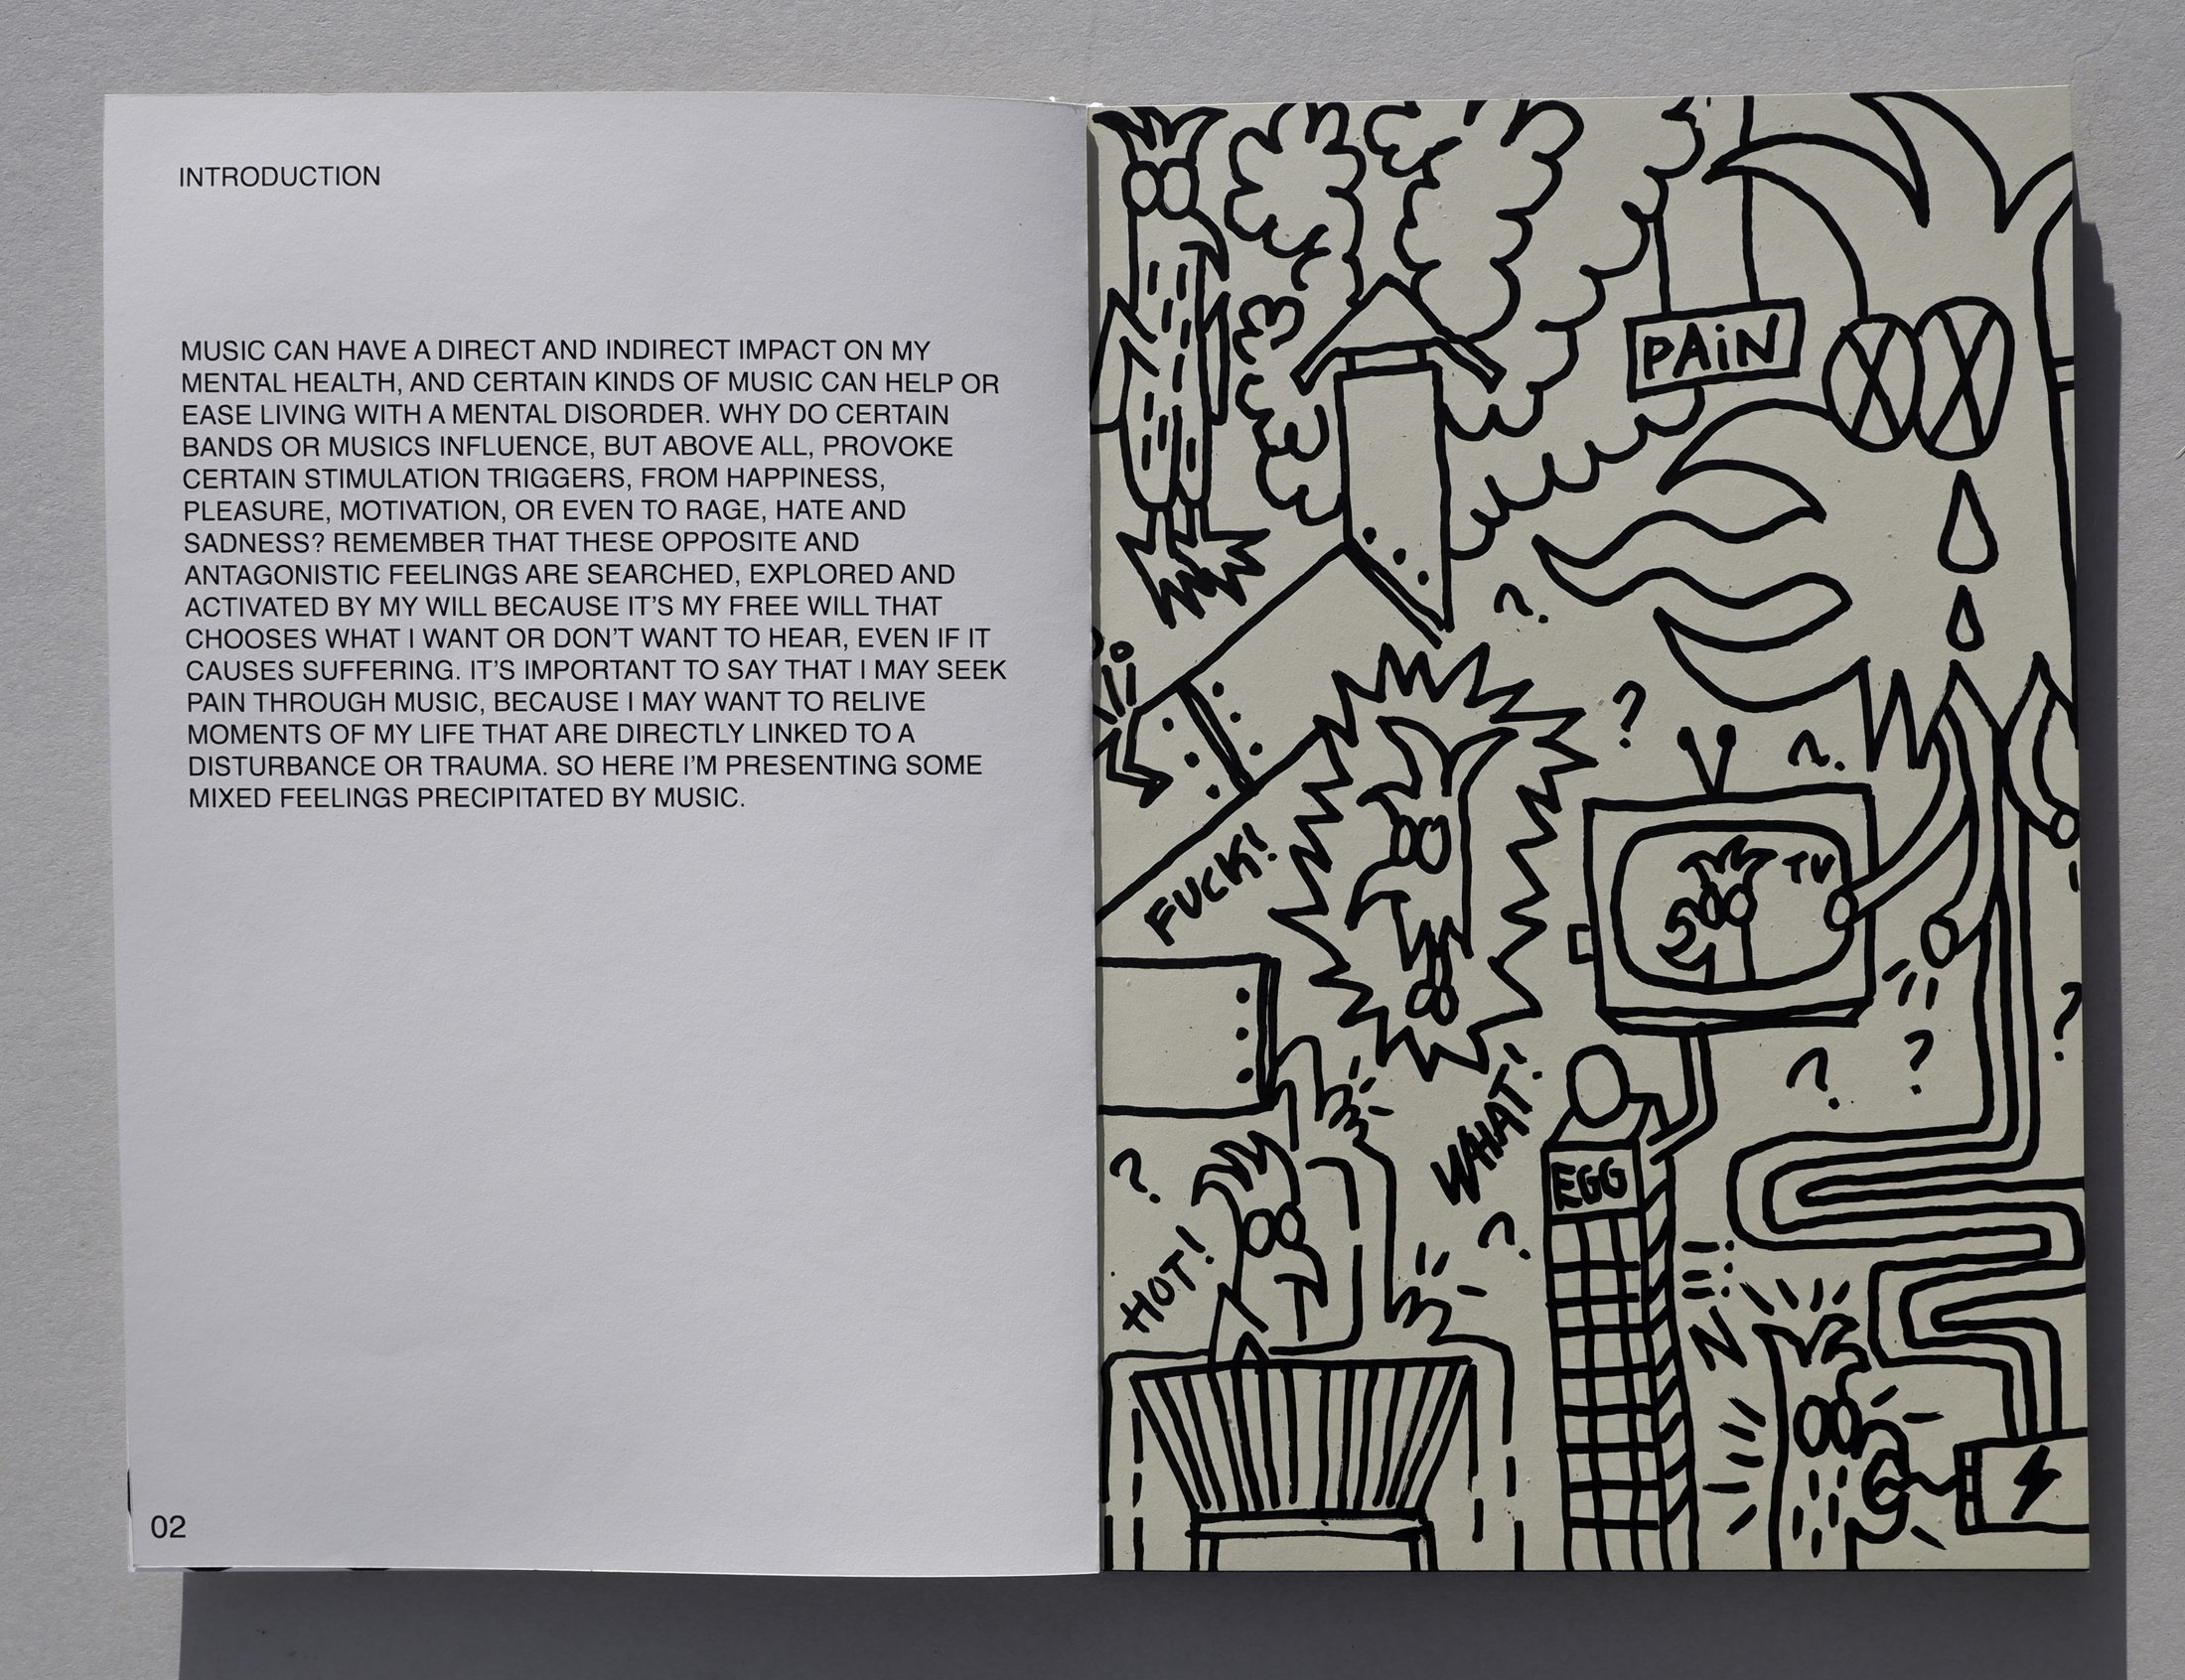 INTRODUCTION
MUSIC CAN HAVE A DIRECT AND INDIRECT IMPACT ON MY
MENTAL HEALTH, AND CERTAIN KINDS OF MUSIC CAN HELP OR
EASE LIVING WITH A MENTAL DISORDER. WHY DO CERTAIN
BANDS OR MUSICS INFLUENCE, BUT ABOVE ALL, PROVOKE
CERTAIN STIMULATION TRIGGERS, FROM HAPPINESS,
PLEASURE, MOTIVATION, OR EVEN TO RAGE, HATE AND
SADNESS? REMEMBER THAT THESE OPPOSITE AND
ANTAGONISTIC FEELINGS ARE SEARCHED, EXPLORED AND
ACTIVATED BY MY WILL BECAUSE IT'S MY FREE WILL THAT
CHOOSES WHAT I WANT OR DON'T WANT TO HEAR, EVEN IF IT
CAUSES SUFFERING. IT'S IMPORTANT TO SAY THAT I MAY SEEK
PAIN THROUGH MUSIC, BECAUSE I MAY WANT TO RELIVE
MOMENTS OF MY LIFE THAT ARE DIRECTLY LINKED TO A
DISTURBANCE OR TRAUMA. SO HERE I'M PRESENTING SOME
MIXED FEELINGS PRECIPITATED BY MUSIC.
02
PAiN
?
?
?
TV
FUCK!
?
?
?
WHAT!
?
EGG
?
HOT!